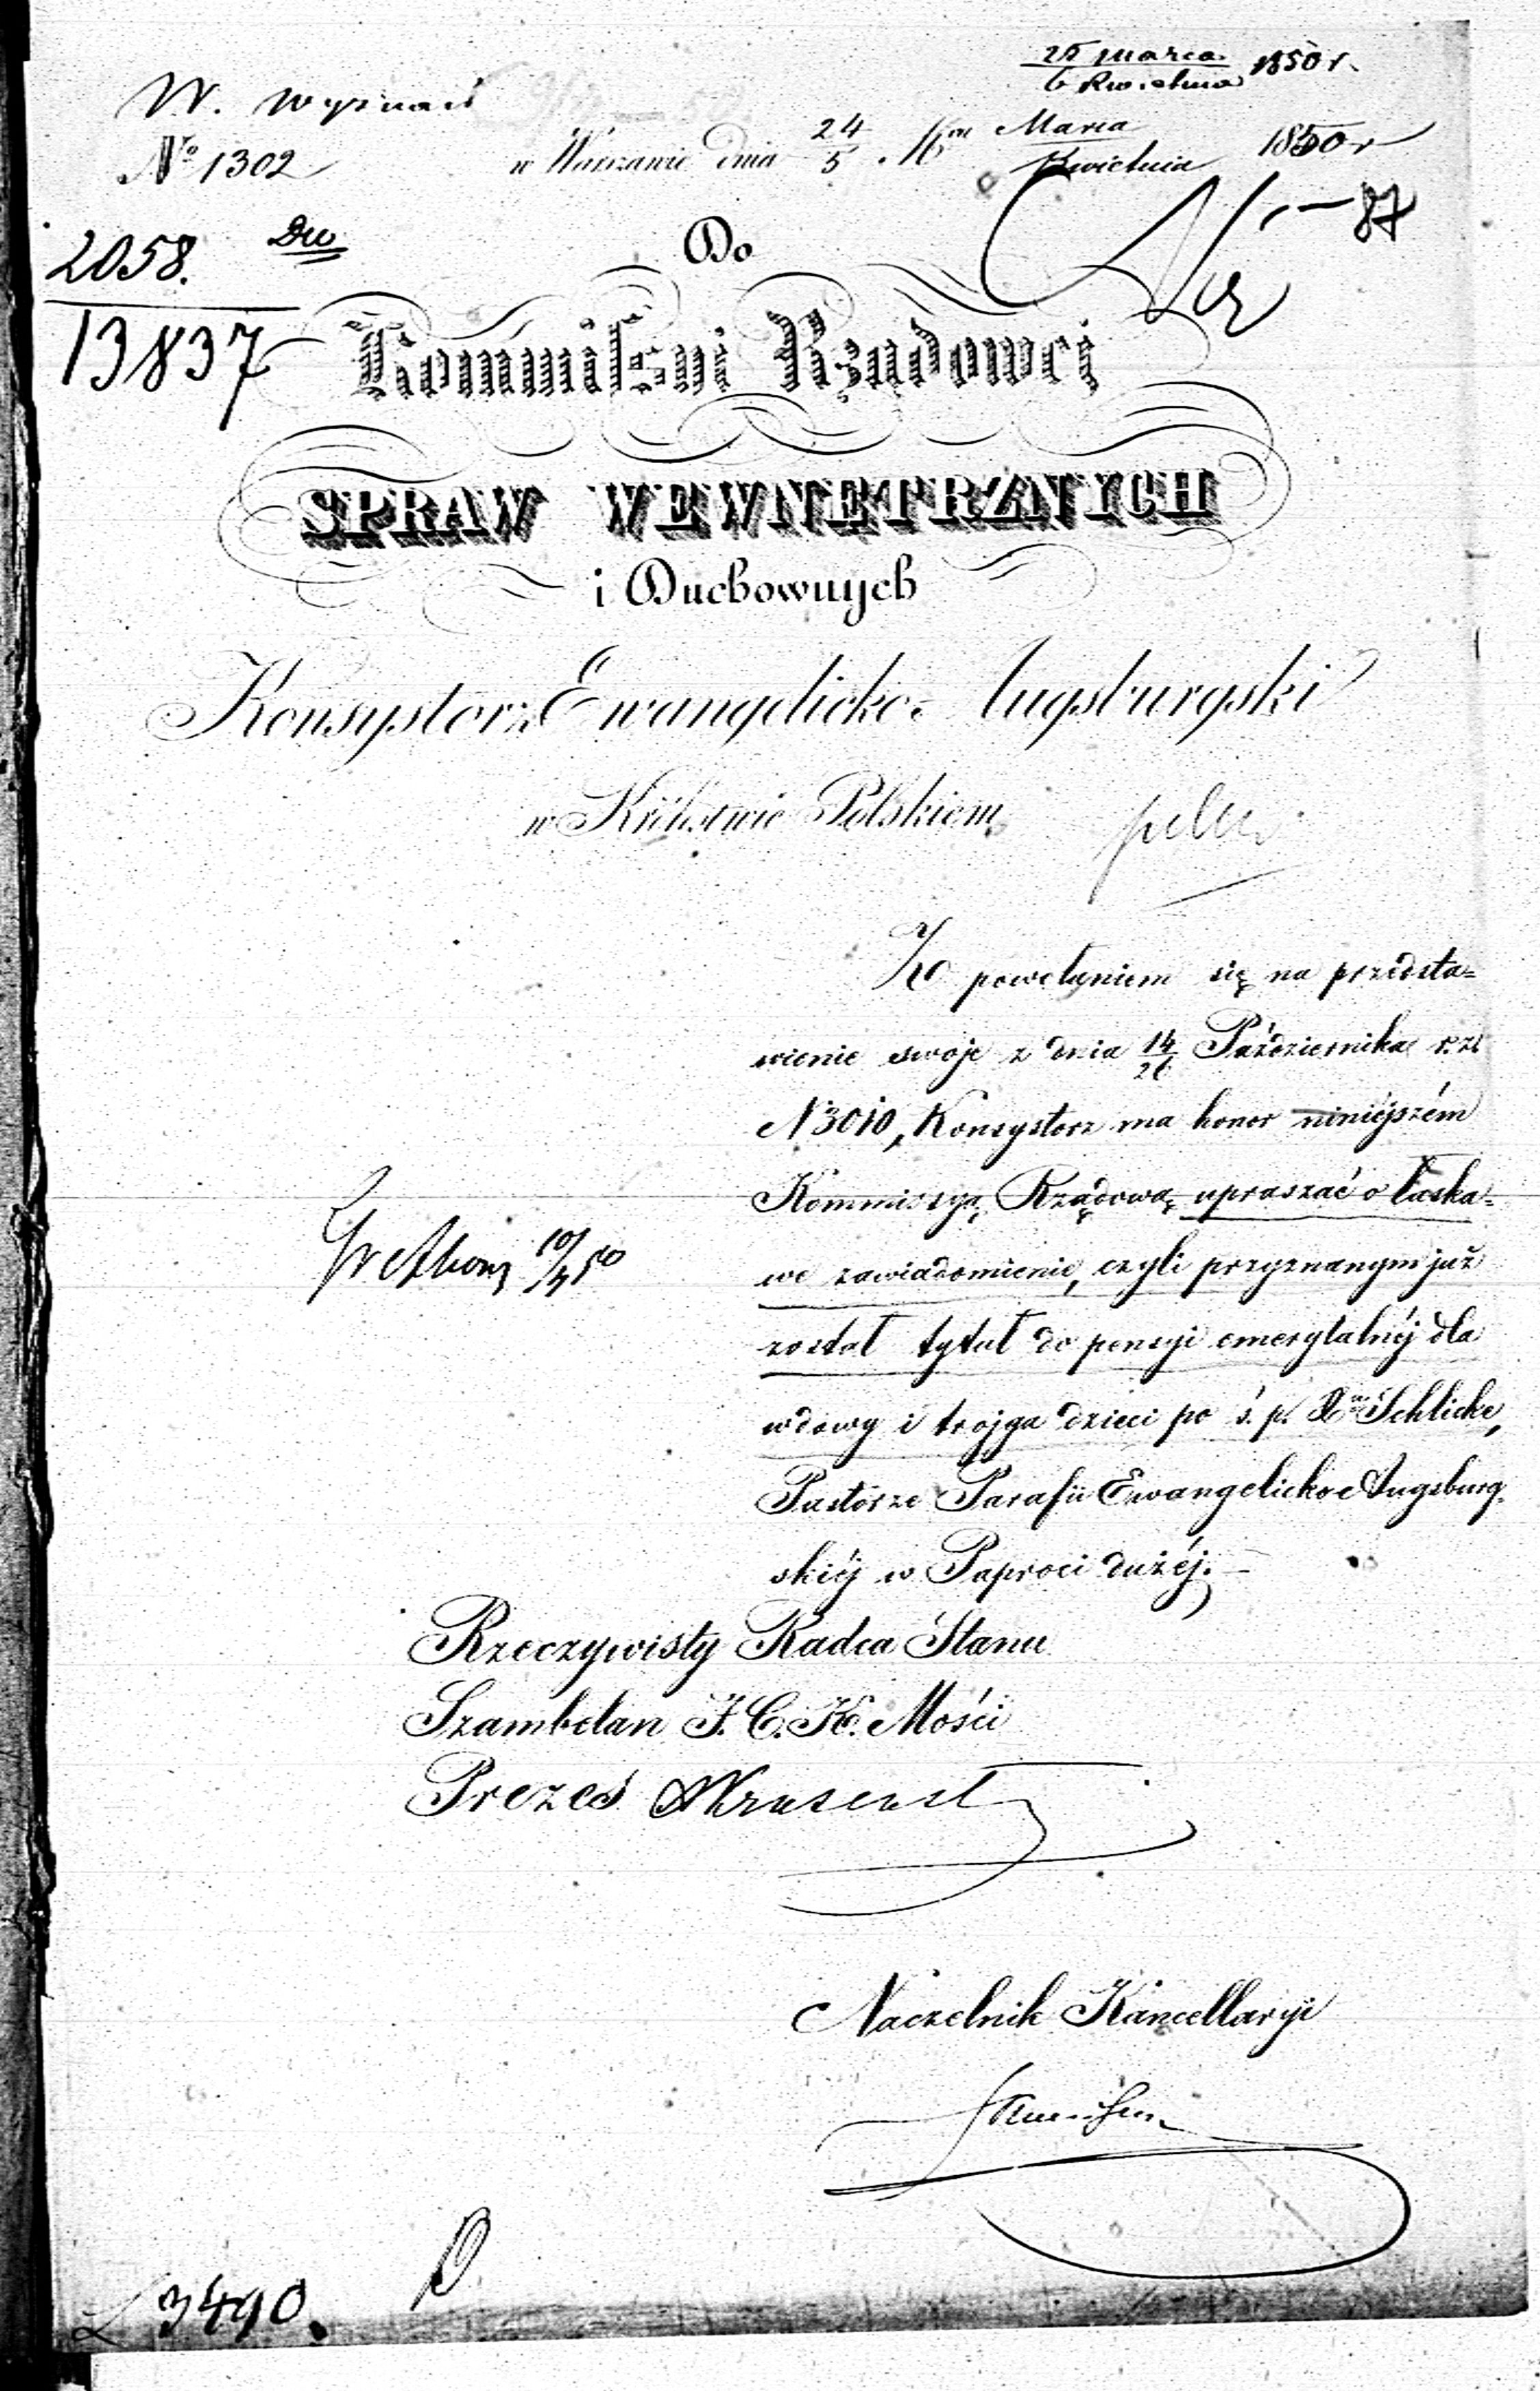 25 Marca
6 Kwietnia 1850 r.
W. Wyznań
w Warszawie dnia 24/5 Mca Marca/Kwietnia 1850 r
№ 1302
87
2058.
13837
Do
Kommissyi Rządowej
SPRAW WEWNĘTRZNYCH
i Duchownych
Konsystorz Ewangelicko-Augsburgski
w Królestwie Polskiem
Z powołaniem się na przedsta=
wienie swoje z dnia 14/26 Października r. z.
N 3010, Konsystorz ma honor niniéjszém
Kommissyą Rządową upraszać o łaska=
we zawiadomienie, czyli przyznanym już
10/4 50
został tytuł do pensyi emerytalnéj dla
wdowy i trojga dzieci po ś. p. Schlicke,
Pastorze Parafii Ewangelicko-Augsburg-
skiéj w Paproci dużéj.
Rzeczywisty Radca Stanu
Szambelan J. C. K. Mości
Prezes
Naczelnik Kancellaryi
3490.